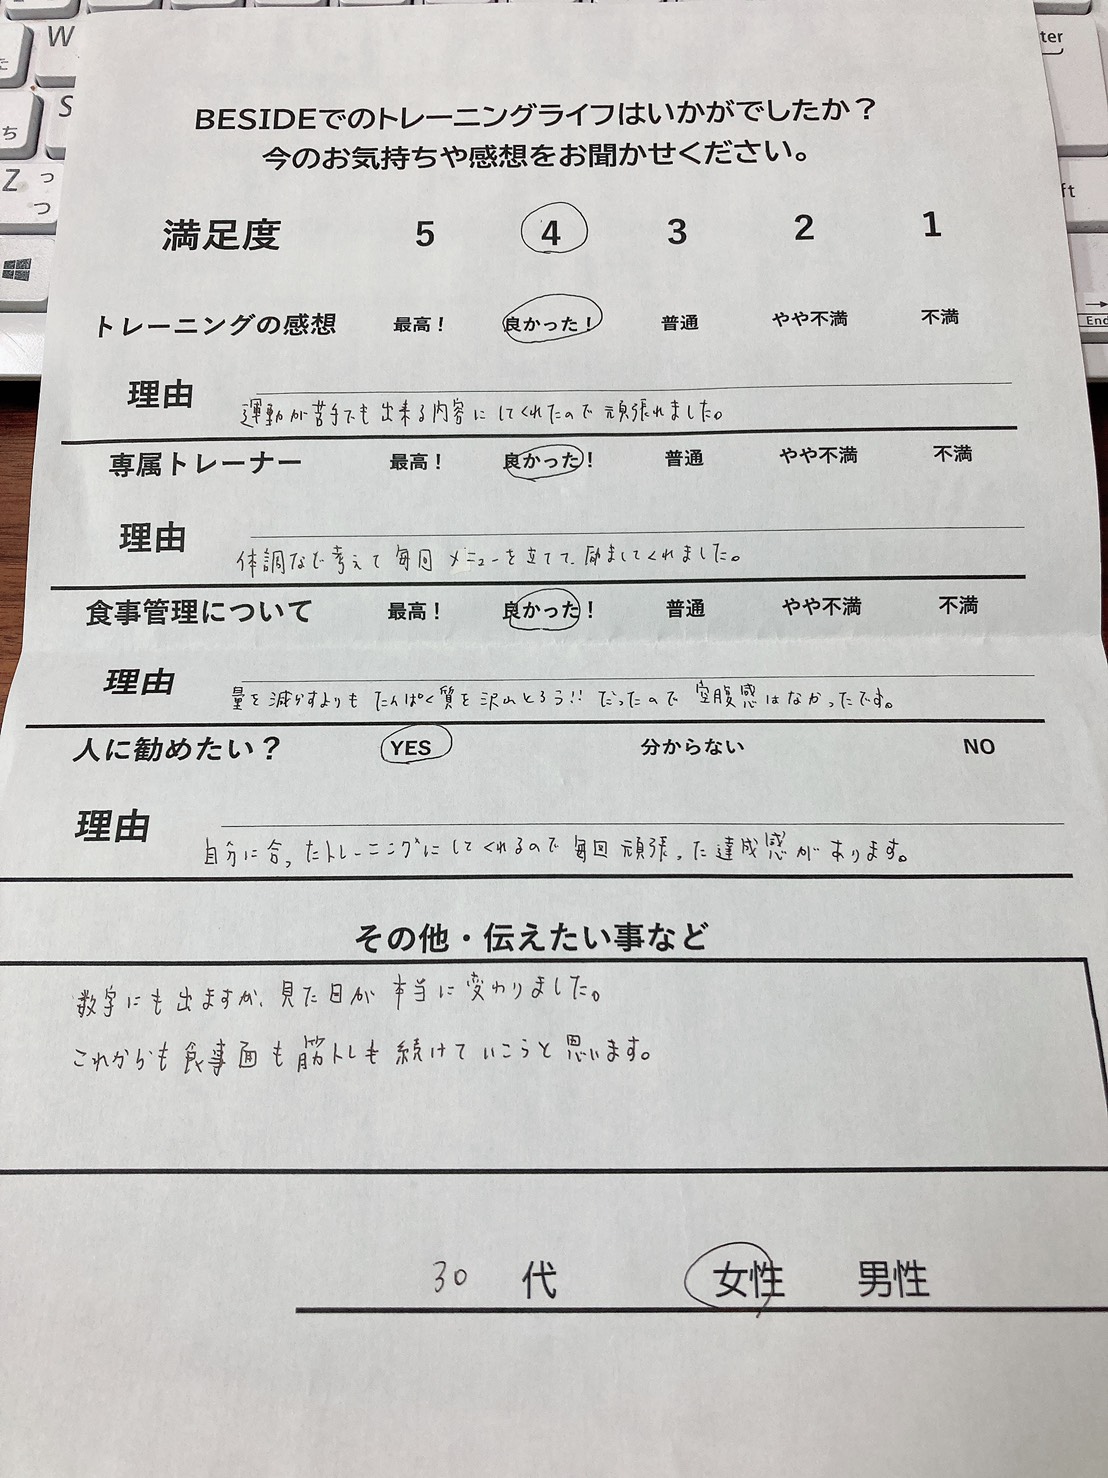 W
ter
S
ち
Z っ
つ
ft
→
End
BESIDEでのトレーニングライフはいかがでしたか？
今のお気持ちや感想をお聞かせください。
満足度 5 4 3 2 1
トレーニングの感想 最高！ 良かった！ 普通 やや不満 不満
理由 運動が苦手でも出来る内容にしてくれたので頑張れました。
専属トレーナー 最高！ 良かった！ 普通 やや不満 不満
理由 体調など考えて毎回メニューを立てて、励ましてくれました。
食事管理について 最高！ 良かった！ 普通 やや不満 不満
理由 量を減らすよりもたんぱく質を沢山とろう!! だったので空腹感はなかったです。
人に勧めたい？ YES 分からない NO
理由 自分に合ったトレーニングにしてくれるので毎回頑張った達成感があります。
その他・伝えたい事など
数字にも出ますが、見た目が本当に変わりました。
これからも食事面も筋トレも続けていこうと思います。
30 代 女性 男性